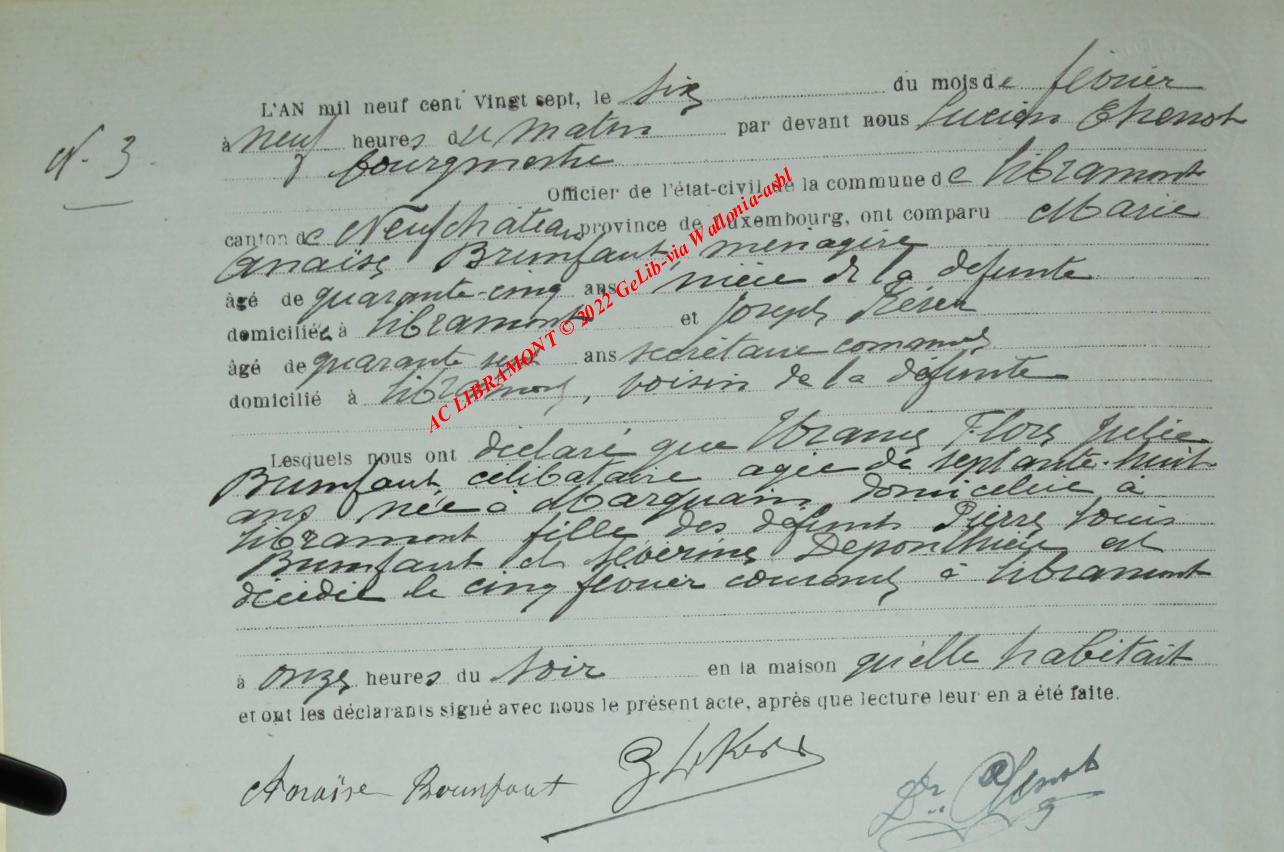 N. 3.
L'AN mil neuf cent Vingt sept, le six du mois de février
à neuf heures du matin par devant nous Lucien Chenot
bourgmestre
Officier de l'état-civil de la commune de Libramont
canton de Neufchâteau province de Luxembourg, ont comparu Marie
Anaïse Brunfaut ménagère
âgé de quarante-cinq ans nièce de la défunte
domiciliée à Libramont et Joseph
âgé de quarante sept ans secrétaire communal
domicilié à Libramont, voisin de la défunte
Lesquels nous ont déclaré que Flore Julie
Brunfaut célibataire agée de septante-huit
ans née à Marquain, domiciliée à
Libramont fille des défunts Pierre Louis
Brunfaut et Séverine est
décédée le cinq février courant à Libramont
à onze heures du soir en la maison qu'elle habitait
et ont les déclarants signé avec nous le présent acte, après que lecture leur en a été faite.
Anaïse Brunfaut
Dr Chenot
AC LIBRAMONT © 2022 GeLib-via Wallonia-asbl